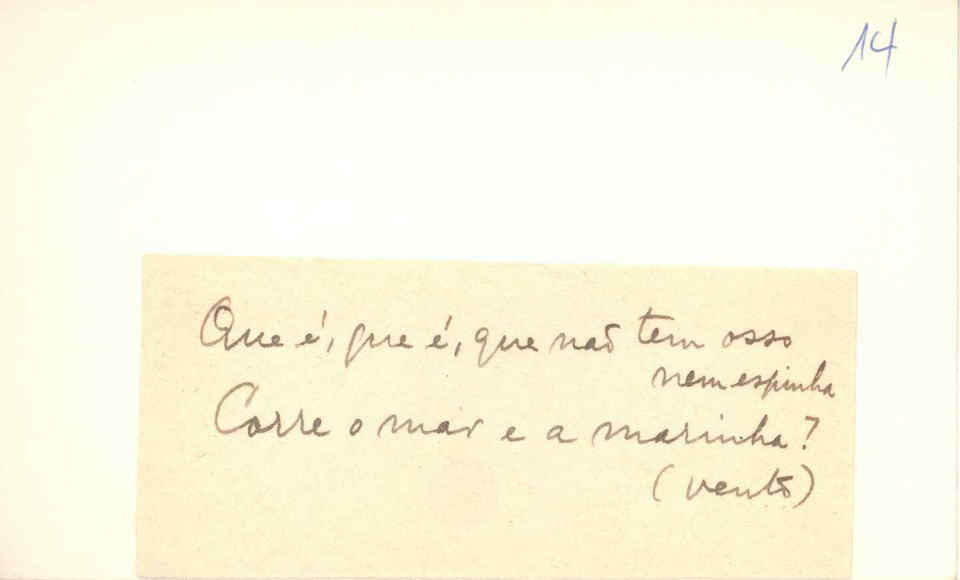 14
Que é, que é, que não tem osso
nem espinha
Corre o mar e a marinha?
(vento)